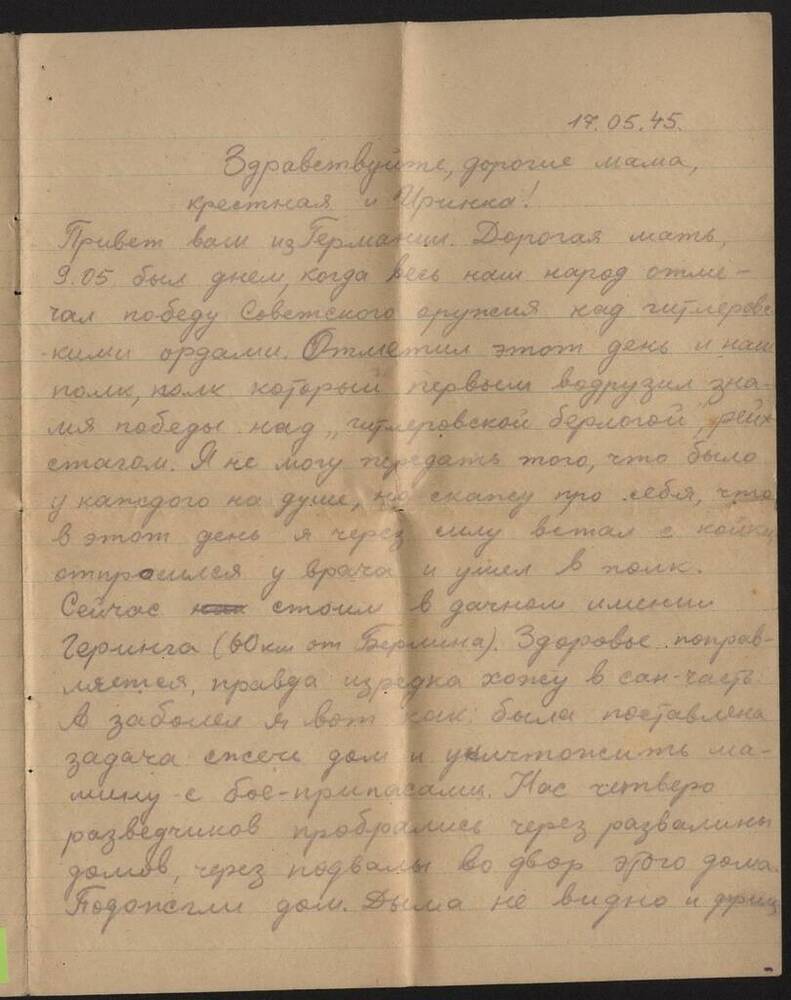 17.05.45.
Здравствуйте, дорогие мама,
крестная и Иринка!
Привет вам из Германии. Дорогая мать,
9.05. был днем, когда весь наш народ отме-
чал победу Советского оружия над гитлеровс-
кими ордами. Отметил этот день и наш
полк, полк который первым водрузил зна-
мя победы над „гитлеровской берлогой", рейх-
стагом. Я не могу передать того, что было
у каждого на душе, но скажу про себя, что
в этот день я через силу встал с койки
отпросился у врача и ушел в полк.
Сейчас стоим в дачном имении
Геринга (60 км от Берлина). Здоровье поправ-
ляется, правда изредка хожу в сан-часть.
А заболел я вот как: была поставлена
задача сжечь дом и уничтожить ма-
шину с бое-припасами. Нас четверо
разведчиков пробрались через развалины
домов, через подвалы во двор этого дома.
Подожгли дом. Дыма не видно и